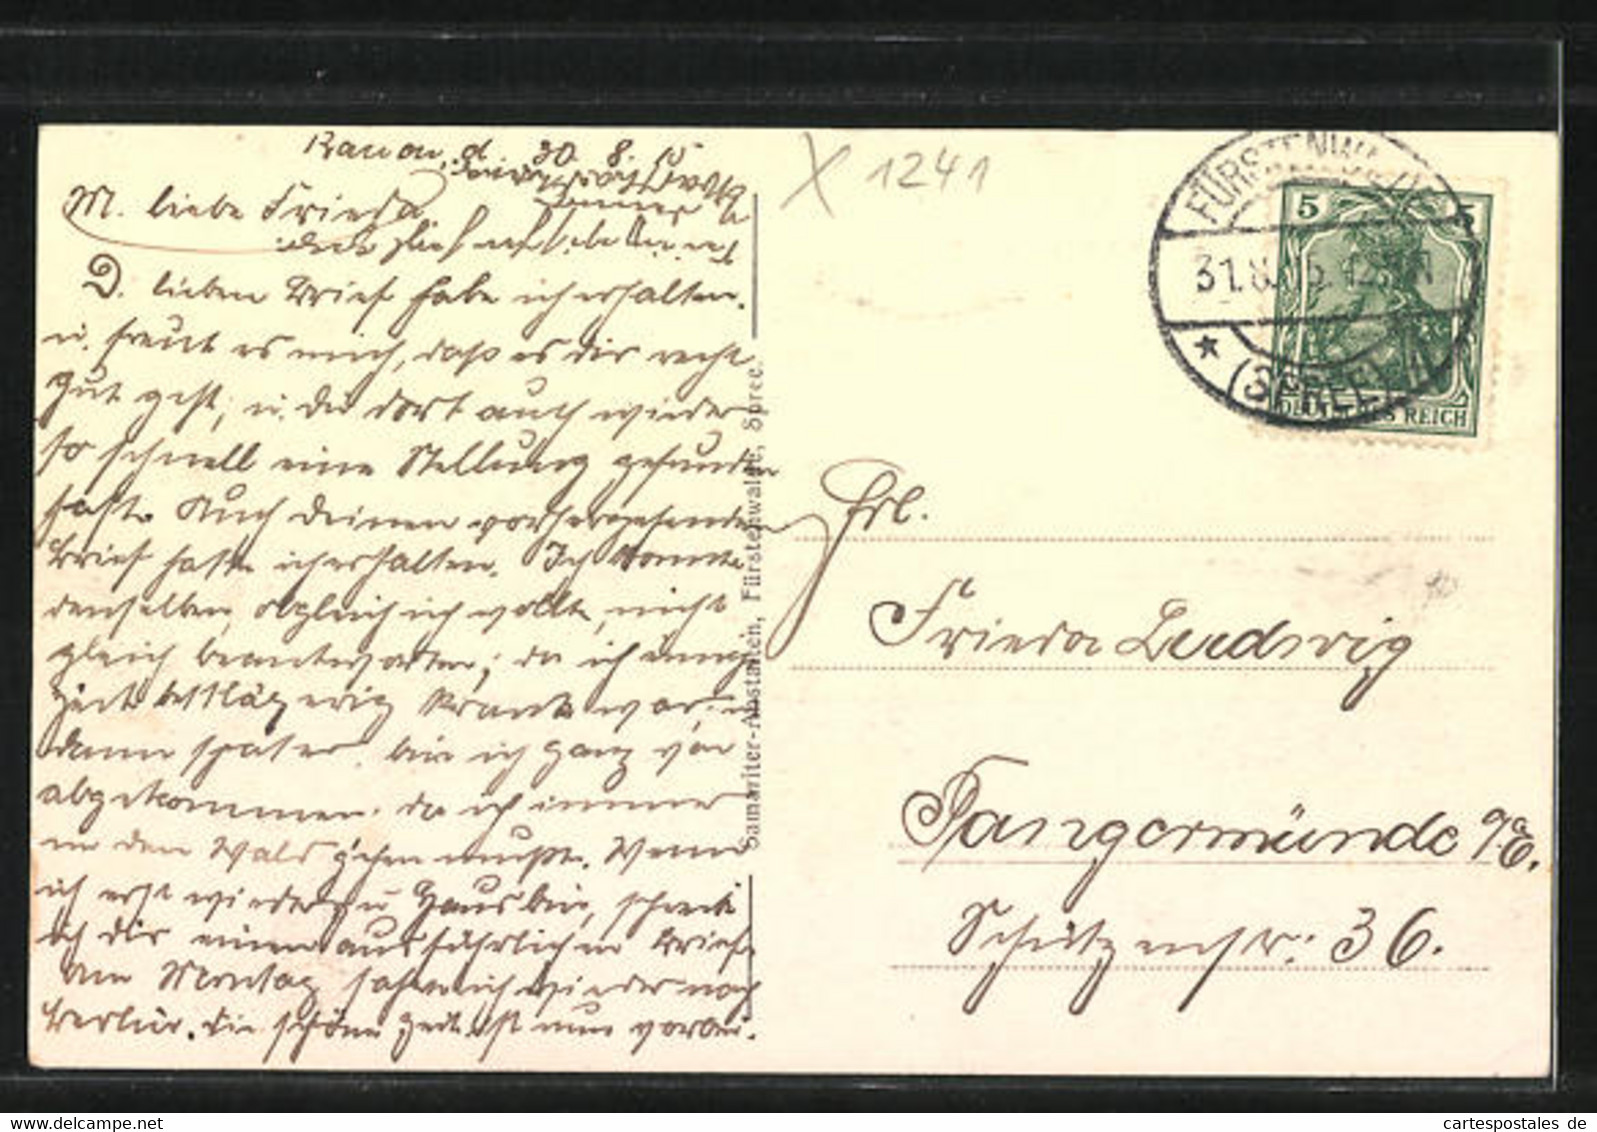 Rauen, d. 30. 8. 15
M. liebe Frieda.
D. lieben Brief habe ich erhalten.
u. freut es mich, daß es dir recht
gut geht, u. du dort auch wieder
so schnell eine Stellung gefunden
hast. Auch deinen vorhergehenden
Brief hatte ich erhalten. Ich konnte
denselben, obgleich ich wollte, nicht
gleich beantworten, da ich einige
Zeit bettlägerig krank war, u
dann später bin ich ganz von
abgekommen. da ich immer
in den Wald gehen mußte. Wenn
ich erst wieder zu Haus bin, schreib
ich dir einen ausführlichen Brief.
Am Montag fahre ich wieder nach
Berlin. Die schöne Zeit ist nun vorbei.
Samariter-Anstalten, Fürstenwalde, Spree.
X 1241
FÜRSTENWALDE
31.8.15 12
* (SPREE)
5 5
DEUTSCHES REICH
Frl.
Frieda Ludwig
Tangermünde a/E.
Schützenstr: 36.
cartespostales de
www.delcampe.net